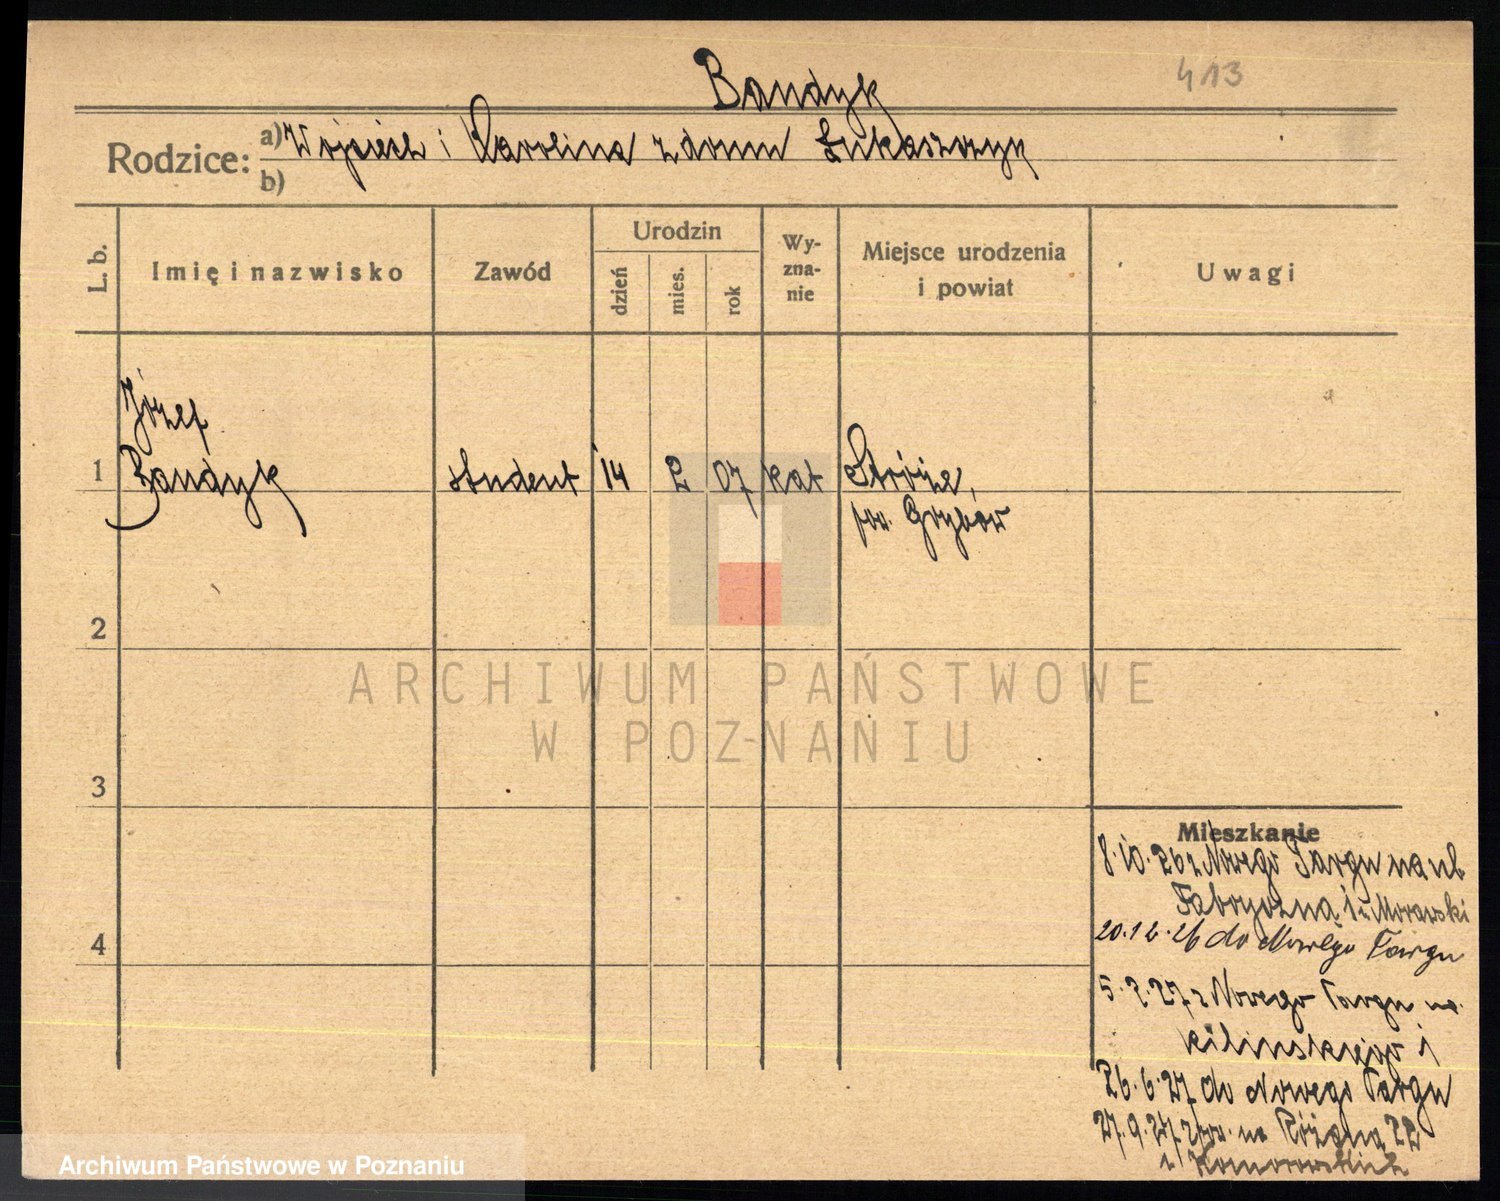 413
Bandyk
Rodzice: a) Wojciech i Karolina z domu Łukaszczyk
b)
L. b. Imię i nazwisko Zawód Urodzin dzień mies. rok Wy-zna-nie Miejsce urodzenia i powiat Uwagi
Józef
1 Bandyk student 14 2 07 kat Stróże,
pow. Grybów
2
ARCHIWUM PAŃSTWOWE
W POZNANIU
3
Mieszkanie
8.10.26 z Nowego Targu na ul
Fabryczną 1 u Morawski
4
20.12.26 do Nowego Targu
5.2.27 z Nowego Targu na
Kilinskiego 1
26.6.27 do Nowego Targu
27.9.27 na Różaną 22
u Komorowskich
Archiwum Państwowe w Poznaniu